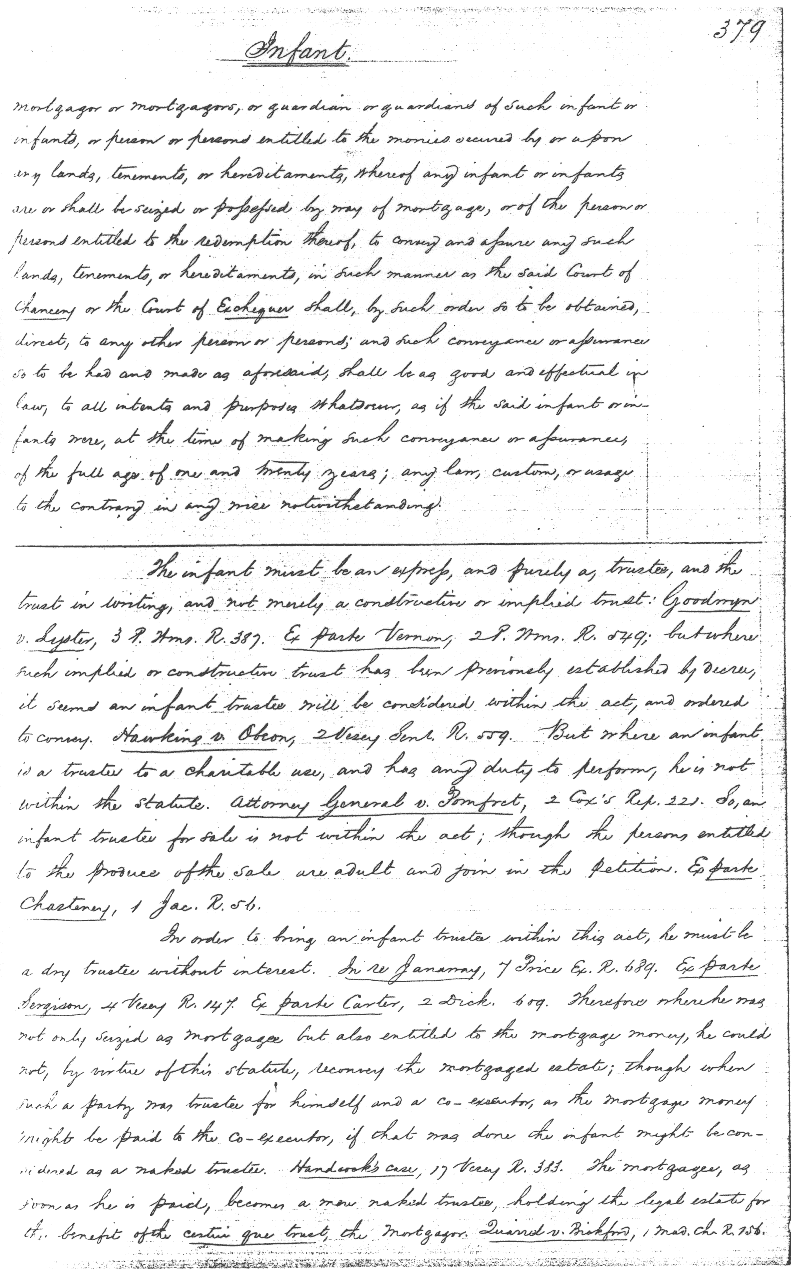 379
Infant.
mortgagor or mortgagors, or guardian or guardians of such infant or
infants, or person or persons entitled to the monies secured by or upon
any lands, tenements, or hereditaments, whereof any infant or infants
are or shall be seized or possessed by way of mortgage, or of the person or
persons entitled to the redemption thereof, to convey and assure any such
lands, tenements, or hereditaments, in such manner as the said Court of
Chancery or the Court of Exchequer shall, by such order so to be obtained,
direct, to any other person or persons; and such conveyance or assurance
so to be had and made as aforesaid, shall be as good and effectual in
law, to all intents and purposes whatsoever, as if the said infant or in-
fants were, at the time of making such conveyance or assurance,
of the full age of one and twenty years; any law, custom, or usage
to the contrary in any wise notwithstanding.
The infant must be an express, and purely a, trustee, and the
trust in writing, and not merely a constructive or implied trust: Goodwyn
v. Lyster, 3 P. Wms. R. 387. Ex parte Vernon, 2 P. Wms. R. 549; but where
such implied or constructive trust has been previously established by decree,
it seems an infant trustee will be considered within the act, and ordered
to convey. Hawkins v. Obeen, 2 Vesey Senr. R. 559. But where an infant
is a trustee to a charitable use, and has any duty to perform, he is not
within the statute. Attorney General v. Pomfret, 2 Cox's Rep. 221. So, an
infant trustee for sale is not within the act; though the persons entitled
to the produce of the sale are adult and join in the petition. Ex parte
Chasteney, 1 Jac. R. 56.
In order to bring an infant trustee within this act, he must be
a dry trustee without interest. In re Janaway, 7 Price Ex. R. 689. Ex parte
Sergison, 4 Vesey R. 147. Ex parte Carter, 2 Dick. 609. Therefore where he was
not only seized as mortgagee but also entitled to the mortgage money, he could
not, by virtue of this statute, reconvey the mortgaged estate; though when
such a party was trustee for himself and a co-executor, as the mortgage money
might be paid to the co-executor, if that was done the infant might be con-
sidered as a naked trustee. Handcock's case, 17 Vesey R. 383. The mortgagee, as
soon as he is paid, becomes a mere naked trustee, holding the legal estate for
the benefit of the cestui que trust, the mortgagor. Quarrel v. Bickford, 1 Mad. Ch. R. 156.